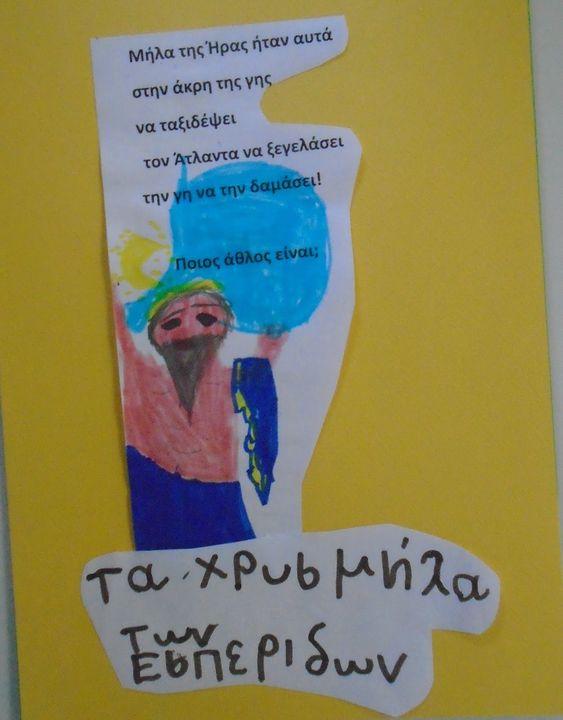 Μήλα της Ήρας ήταν αυτά
στην άκρη της γης
να ταξιδέψει
τον Άτλαντα να ξεγελάσει
την γη να την δαμάσει!
Ποιος άθλος είναι;
τα χρυσμήλα
των
ΕσΠΕΡΙδων